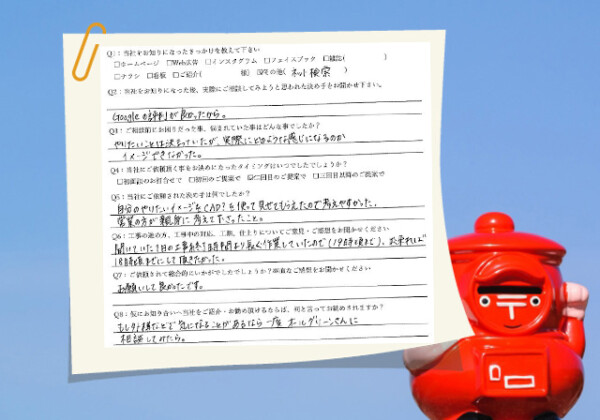 Q1：当社をお知りになったきっかけを教えて下さい
□ホームページ □Web広告 □インスタグラム □フェイスブック □雑誌( )
□チラシ □看板 □ご紹介( 様) ☑その他( ネット検索 )
Q2：当社をお知りになった後、実際にご相談してみようと思われた決め手をお聞かせ下さい。
Googleの評判が良かったから。
Q3：ご相談前にお困りだった事、悩まれていた事はどんな事でしたか？
やりたいことは決まっていたが、実際にどのような感じになるのか
イメージできなかった。
Q4：当社にご依頼頂く事をお決めになったタイミングはいつでしたでしょうか？
□初回のご提案で ☑二回目のご提案で □三回目以降のご提案で
Q5：当社にご依頼された決め手は何でしたか？
自分のやりたいイメージをCAD?を使って見せてもらえたので考えやすかった。
営業の方が親身に考えて下さったこと。
Q6：工事の進め方、工事中の対応、工期、仕上りについてご意見・ご感想をお聞かせください
聞いていた1日の工事終了時間より長く作業していたので(19時頃まで)、出来れば
18時頃までにして頂きたかった。
Q7：ご依頼されて総合的にいかがでしたでしょうか？率直なご感想をお聞かせください
お願いして良かったです。
Q8：仮にお知り合いへ当社をご紹介・お勧め頂けるならば、何と言ってお勧めされますか？
もし外構などで気になることがあるなら一度 さんに
相談してみたら。